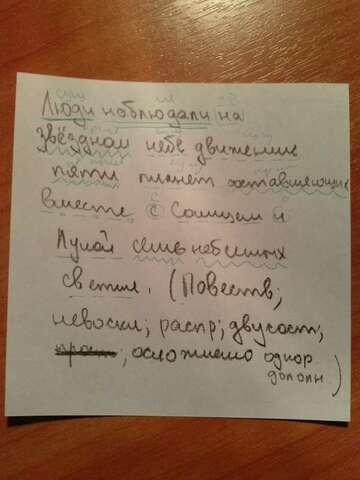 Люди наблюдали на
звёздном небе движение
пяти планет составляющих
вместе с Солнцем и
Луной семь небесных
светил. (Повеств;
невоскл; распр; двусост;
; осложнено однор.
дополн.)